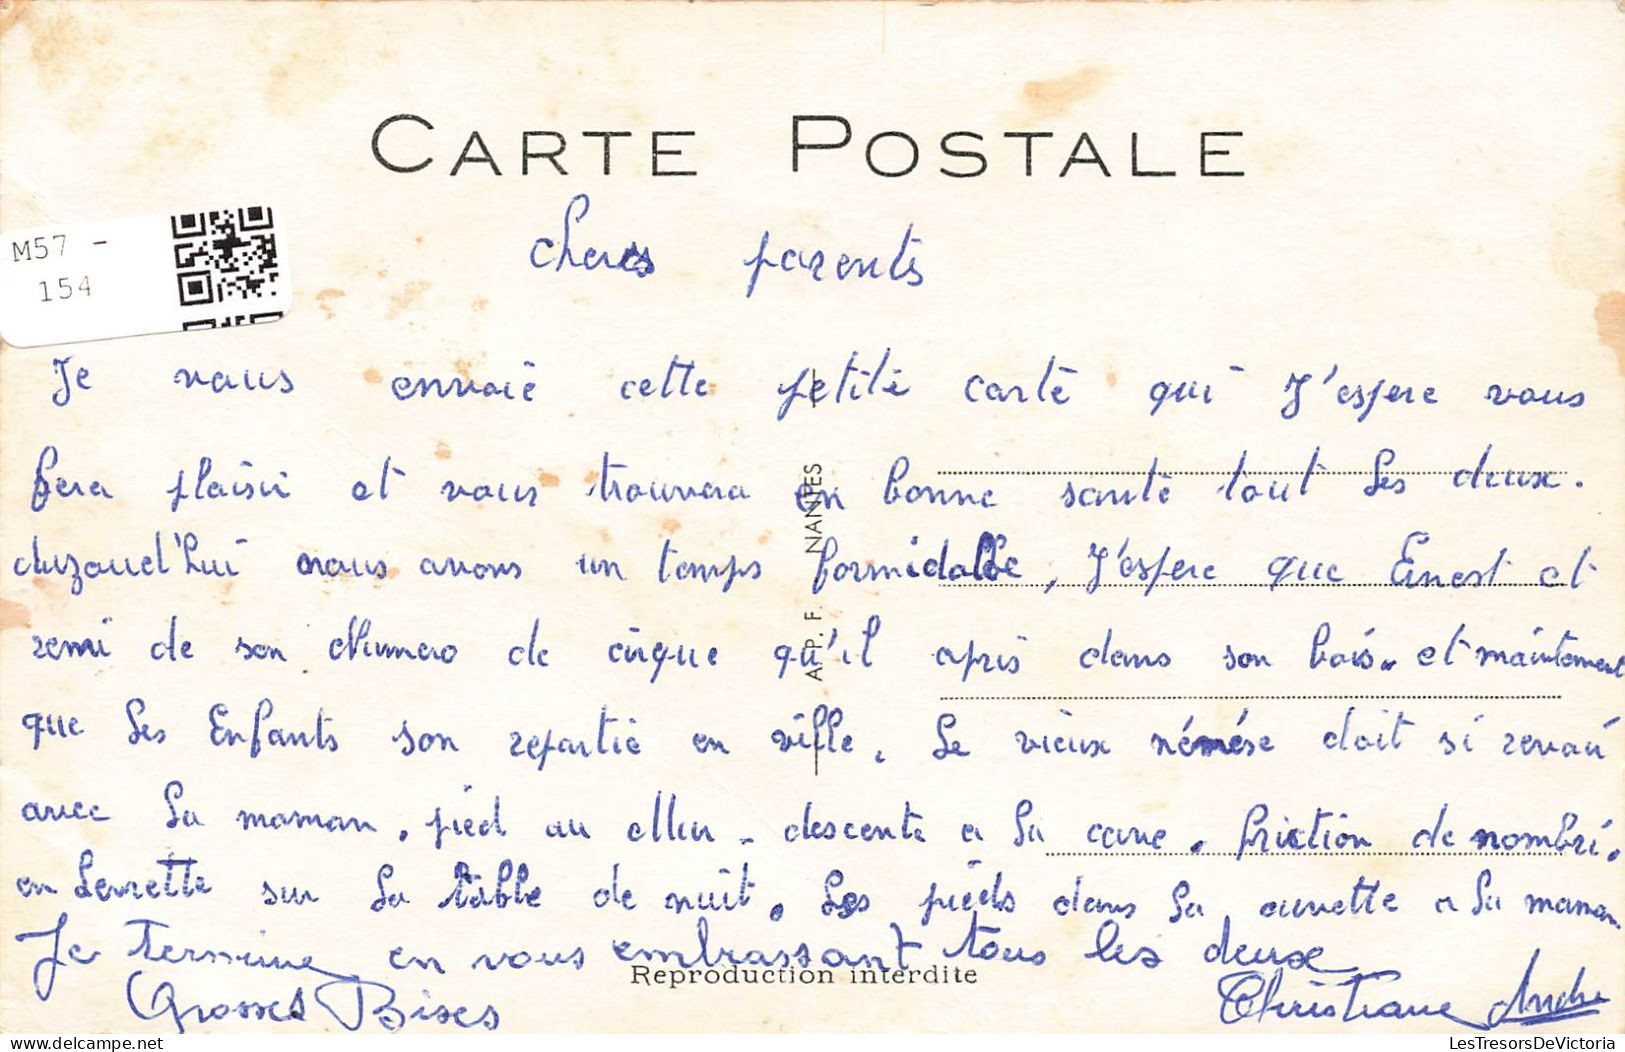 CARTE POSTALE
M57 -
154
chers parents
Je vous envoie cette petite carte qui J'espere vous
fera plaisir et vous trouvera en bonne santé tout les deux.
nous avons un temps formidable, J'espere que Enest et
remi de son Numero de cirque qu'il apris dans son bois. et maintenant
que les Enfants son repartie en ville. Le vieux doit si
avec la maman. pied au . descente a la cave. friction de nombri.
en Levrette sur la table de nuit. Les pieds dans la cuvette a la maman
Je termine en vous embrassant tous les deux
Grosses Bises
Christiane Andre
A. P. F. NANTES
Reproduction interdite
LesTresorsDeVictoria
delcampe.net
LesTresorsDeVictoria